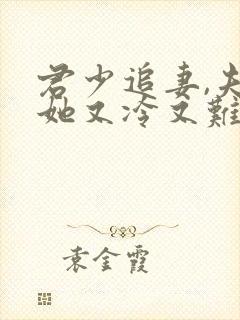 君少追妻,夫
她又冷又難
袁金霞